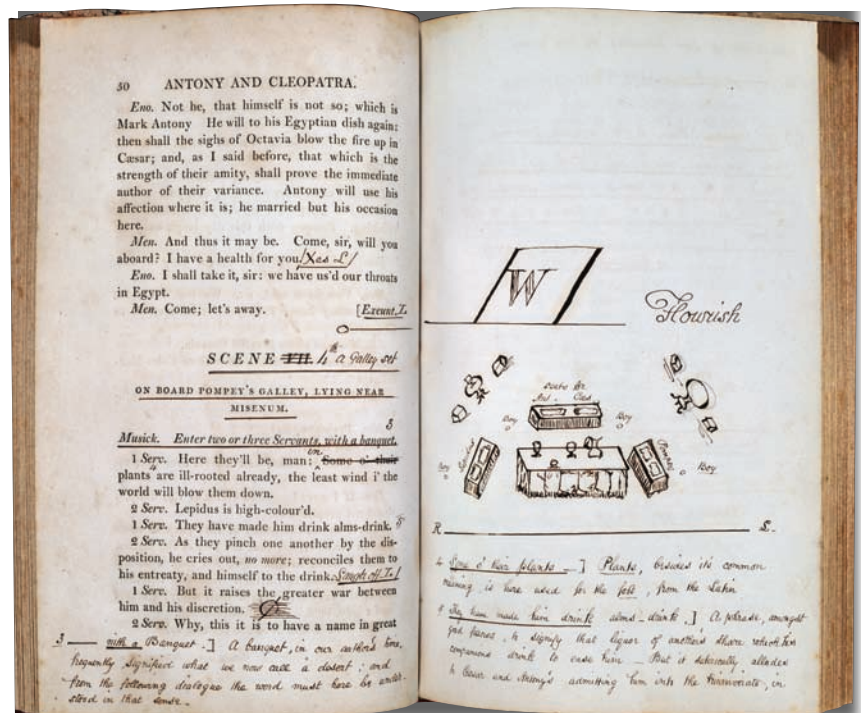 50 ANTONY AND CLEOPATRA.
Eno. Not he, that himself is not so; which is
Mark Antony He will to his Egyptian dish again:
then shall the sighs of Octavia blow the fire up in
Cæsar; and, as I said before, that which is the
strength of their amity, shall prove the immediate
author of their variance. Antony will use his
affection where it is; he married but his occasion
here.
Men. And thus it may be. Come, sir, will you
aboard? I have a health for you.
Eno. I shall take it, sir: we have us'd our throats
in Egypt.
Men. Come; let's away. [Exeunt. L.
SCENE VII. 4th a Galley set
ON BOARD POMPEY'S GALLEY, LYING NEAR
MISENUM.
3
Musick. Enter two or three Servants, with a banquet.
1 Serv. Here they'll be, man: Some o' their
plants 4 are ill-rooted already, the least wind i' the
world will blow them down.
2 Serv. Lepidus is high-colour'd.
1 Serv. They have made him drink alms-drink. 5
2 Serv. As they pinch one another by the dis-
position, he cries out, no more; reconciles them to
his entreaty, and himself to the drink. Laugh off L.
1 Serv. But it raises the greater war between
him and his discretion.
2 Serv. Why, this it is to have a name in great
3 with a Banquet.] A banquet, in our author's time,
frequently signified what we now call a desert; and
from the following dialogue the word must here be under-
stood in that sense.
W
Flourish
seats for
Ant. Cæs.
Boy Boy
Boy Lepidus Pompey Boy
R L.
4 Some o' their plants] Plants, besides its common
meaning is here used for the foot, from the Latin
5 They have made him drink alms-drink.] A phrase, amongst
good fellows, to signify that liquor of another's share which his
companions drink to ease him — But it satirically alludes
to Cæsar and Antony's admitting him into the triumvirate, in